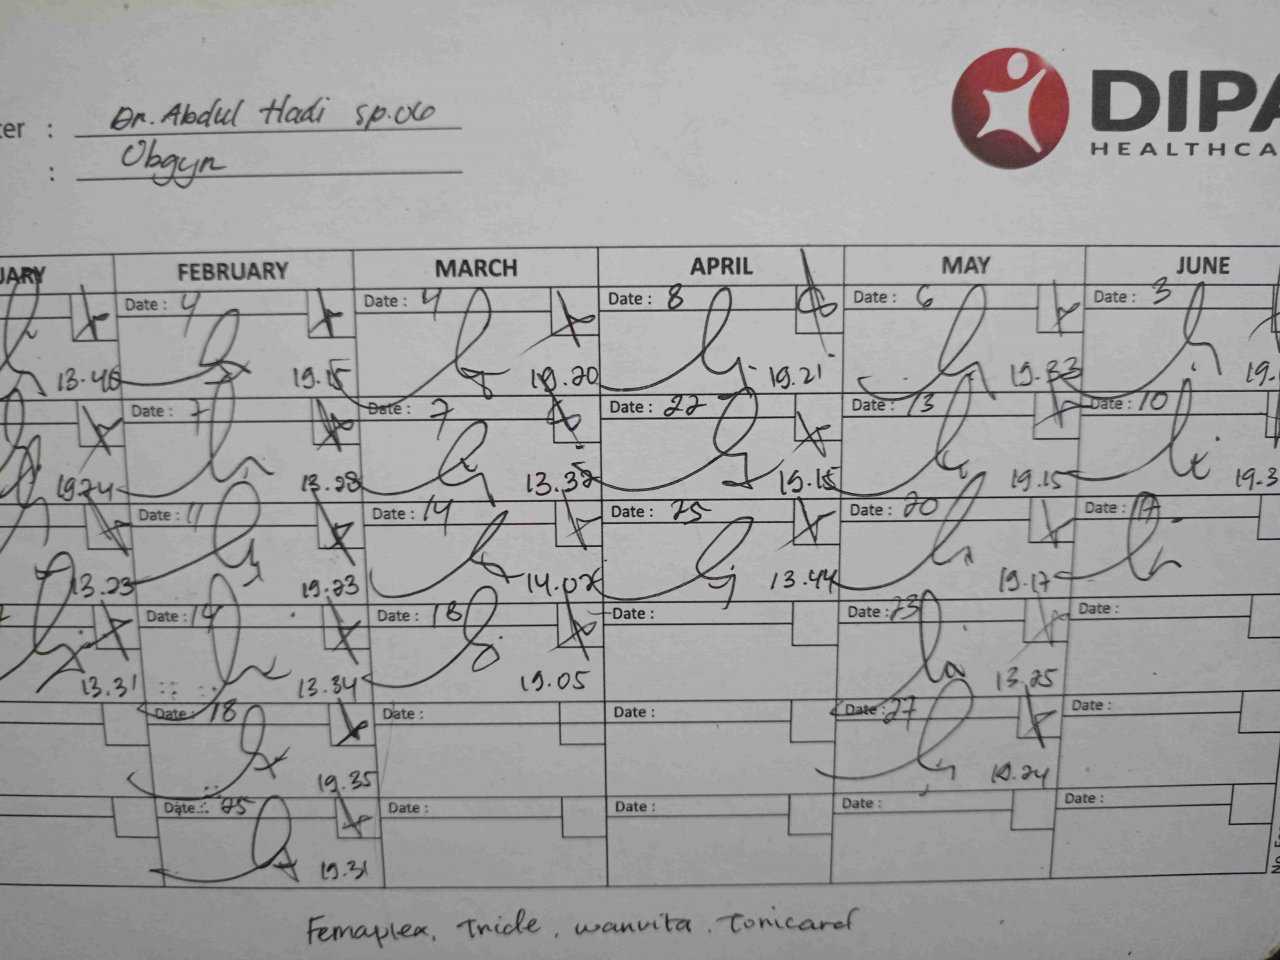 ter : Dr. Abdul Hadi sp.OG
: Obgyn
DIPA
HEALTHCA
UARY FEBRUARY MARCH APRIL MAY JUNE
Date : 4 Date : 4 Date : 8 Date : 6 Date : 3
13.46 19.15 19.20 19.21 19.33 19.
Date : 7 Date : 7 Date : 22 Date : 13 Date : 10
19.24 13.28 13.32 19.15 19.15 19.3
Date : 11 Date : 14 Date : 25 Date : 20 Date : 17
13.23 19.23 14.02 13.44 19.17
Date : 14 Date : 18 Date : Date : 23 Date :
13.31 13.34 19.05 13.25
Date : 18 Date : Date : Date : 27 Date :
19.35 19.24
Date : 25 Date : Date : Date : Date :
19.31
Femaplex, Tricle, wanvita, Tonicard